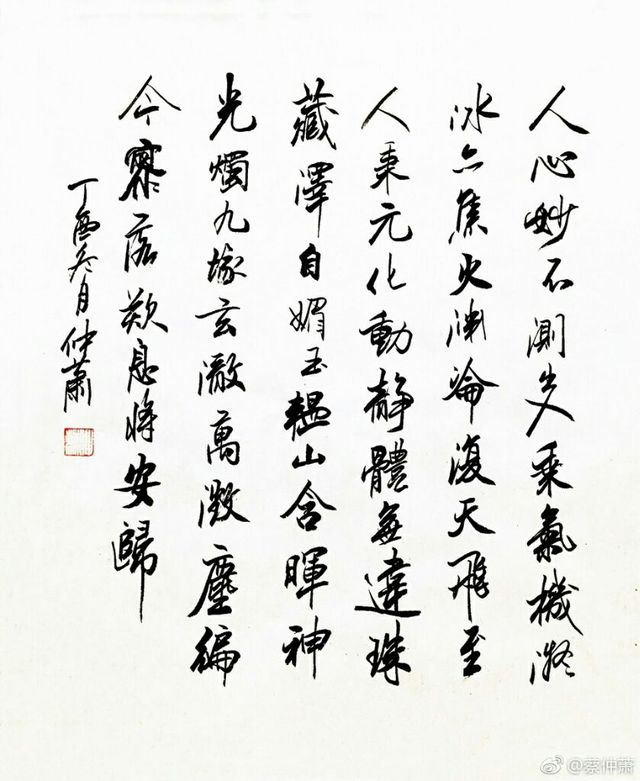 人心妙不測出入乘氣機凝
冰亦焦火淵淪復天飛至
人秉元化動靜體無違珠
藏澤自媚玉韞山含暉神
光燭九垓玄澈萬微塵編
今寥落歎息將安歸
丁酉冬月仲蕭
@蔡仲萧